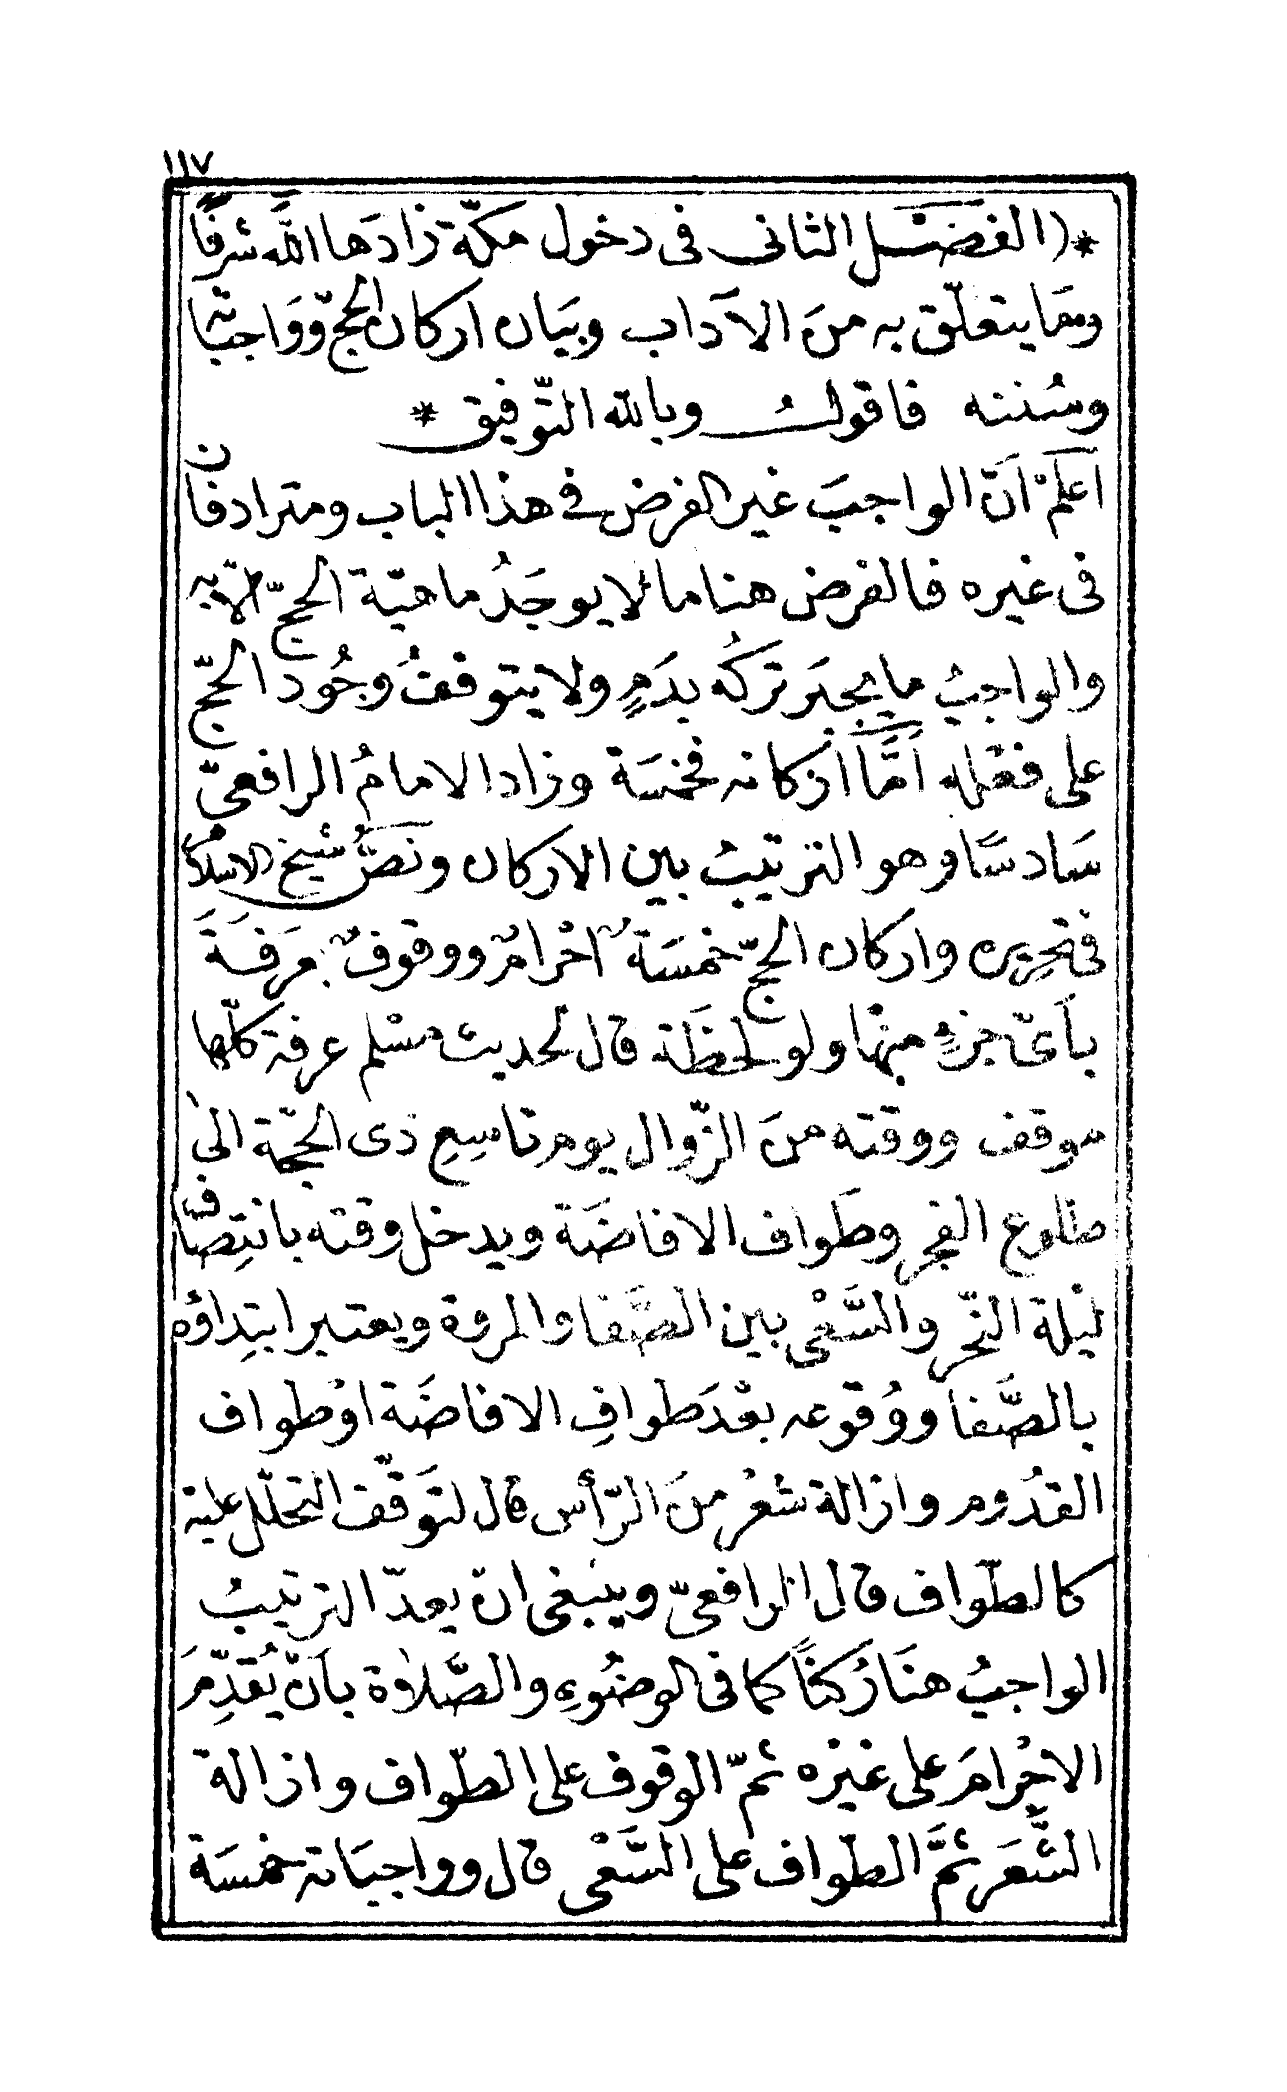 ١١٧
*(الفَصْل الثانى فى دخول مكّة زادَها الله شرفًا
ومَا يتعلّق به منَ الآداب وبيَان اركان الحجّ ووَاجباته
وسُننه فاقولُ وبالله التّوفيق *
اَعلمْ اَنّ الواجبَ غير الفرض فى هذا الباب ومترادفان
فى غيره فالفرض هنا ما لا يوجَدُ ماهيّة الحجّ الّا به
والواجبُ ما يجبَر تركُه بدَمٍ ولا يتوقفُ وجُود الحجّ
على فعْله اَمَّا اركانه فخمسَة وزاد الامامُ الرافعىّ
سَادسًا وهو الترتيبُ بين الاركان ونَصُّ شيخ الاسلام
فى تحريره واركان الحجّ خمسَة احْرامٌ ووقوفٌ بعَرفَةَ
بأىّ جزءٍ منها ولو لحظَة قال لحديث مسْلم عرفة كلّها
موقف ووقته منَ الزّوال يوم تاسِعِ ذى الحجّة الىٰ
طلوع الفجر وطَواف الافاضَة ويدخل وقته بانتِصَاف
ليْلة النّحر والسَّعْى بين الصَّفا والمروة ويعتبر ابتِداؤه
بالصَّفا ووُقوعه بعْدَ طوافِ الافاضَة اوْ طواف
القدُوم وازالة شعْر منَ الرّأس قال لتَوقّف التحلّل عليه
كالطّواف قال الرافعىّ وينبغى ان يعدّ الترتيبُ
الواجبُ هنَا رُكنًا كما فى الوضُوءِ والصَّلاٰة بأنْ يُقَدِّمَ
الاحْرامَ على غيْره ثمّ الوقوف على الطّواف وازالة
الشَّعَر ثمَّ الطّواف على السَّعْى قال وواجبَاته خمسَة